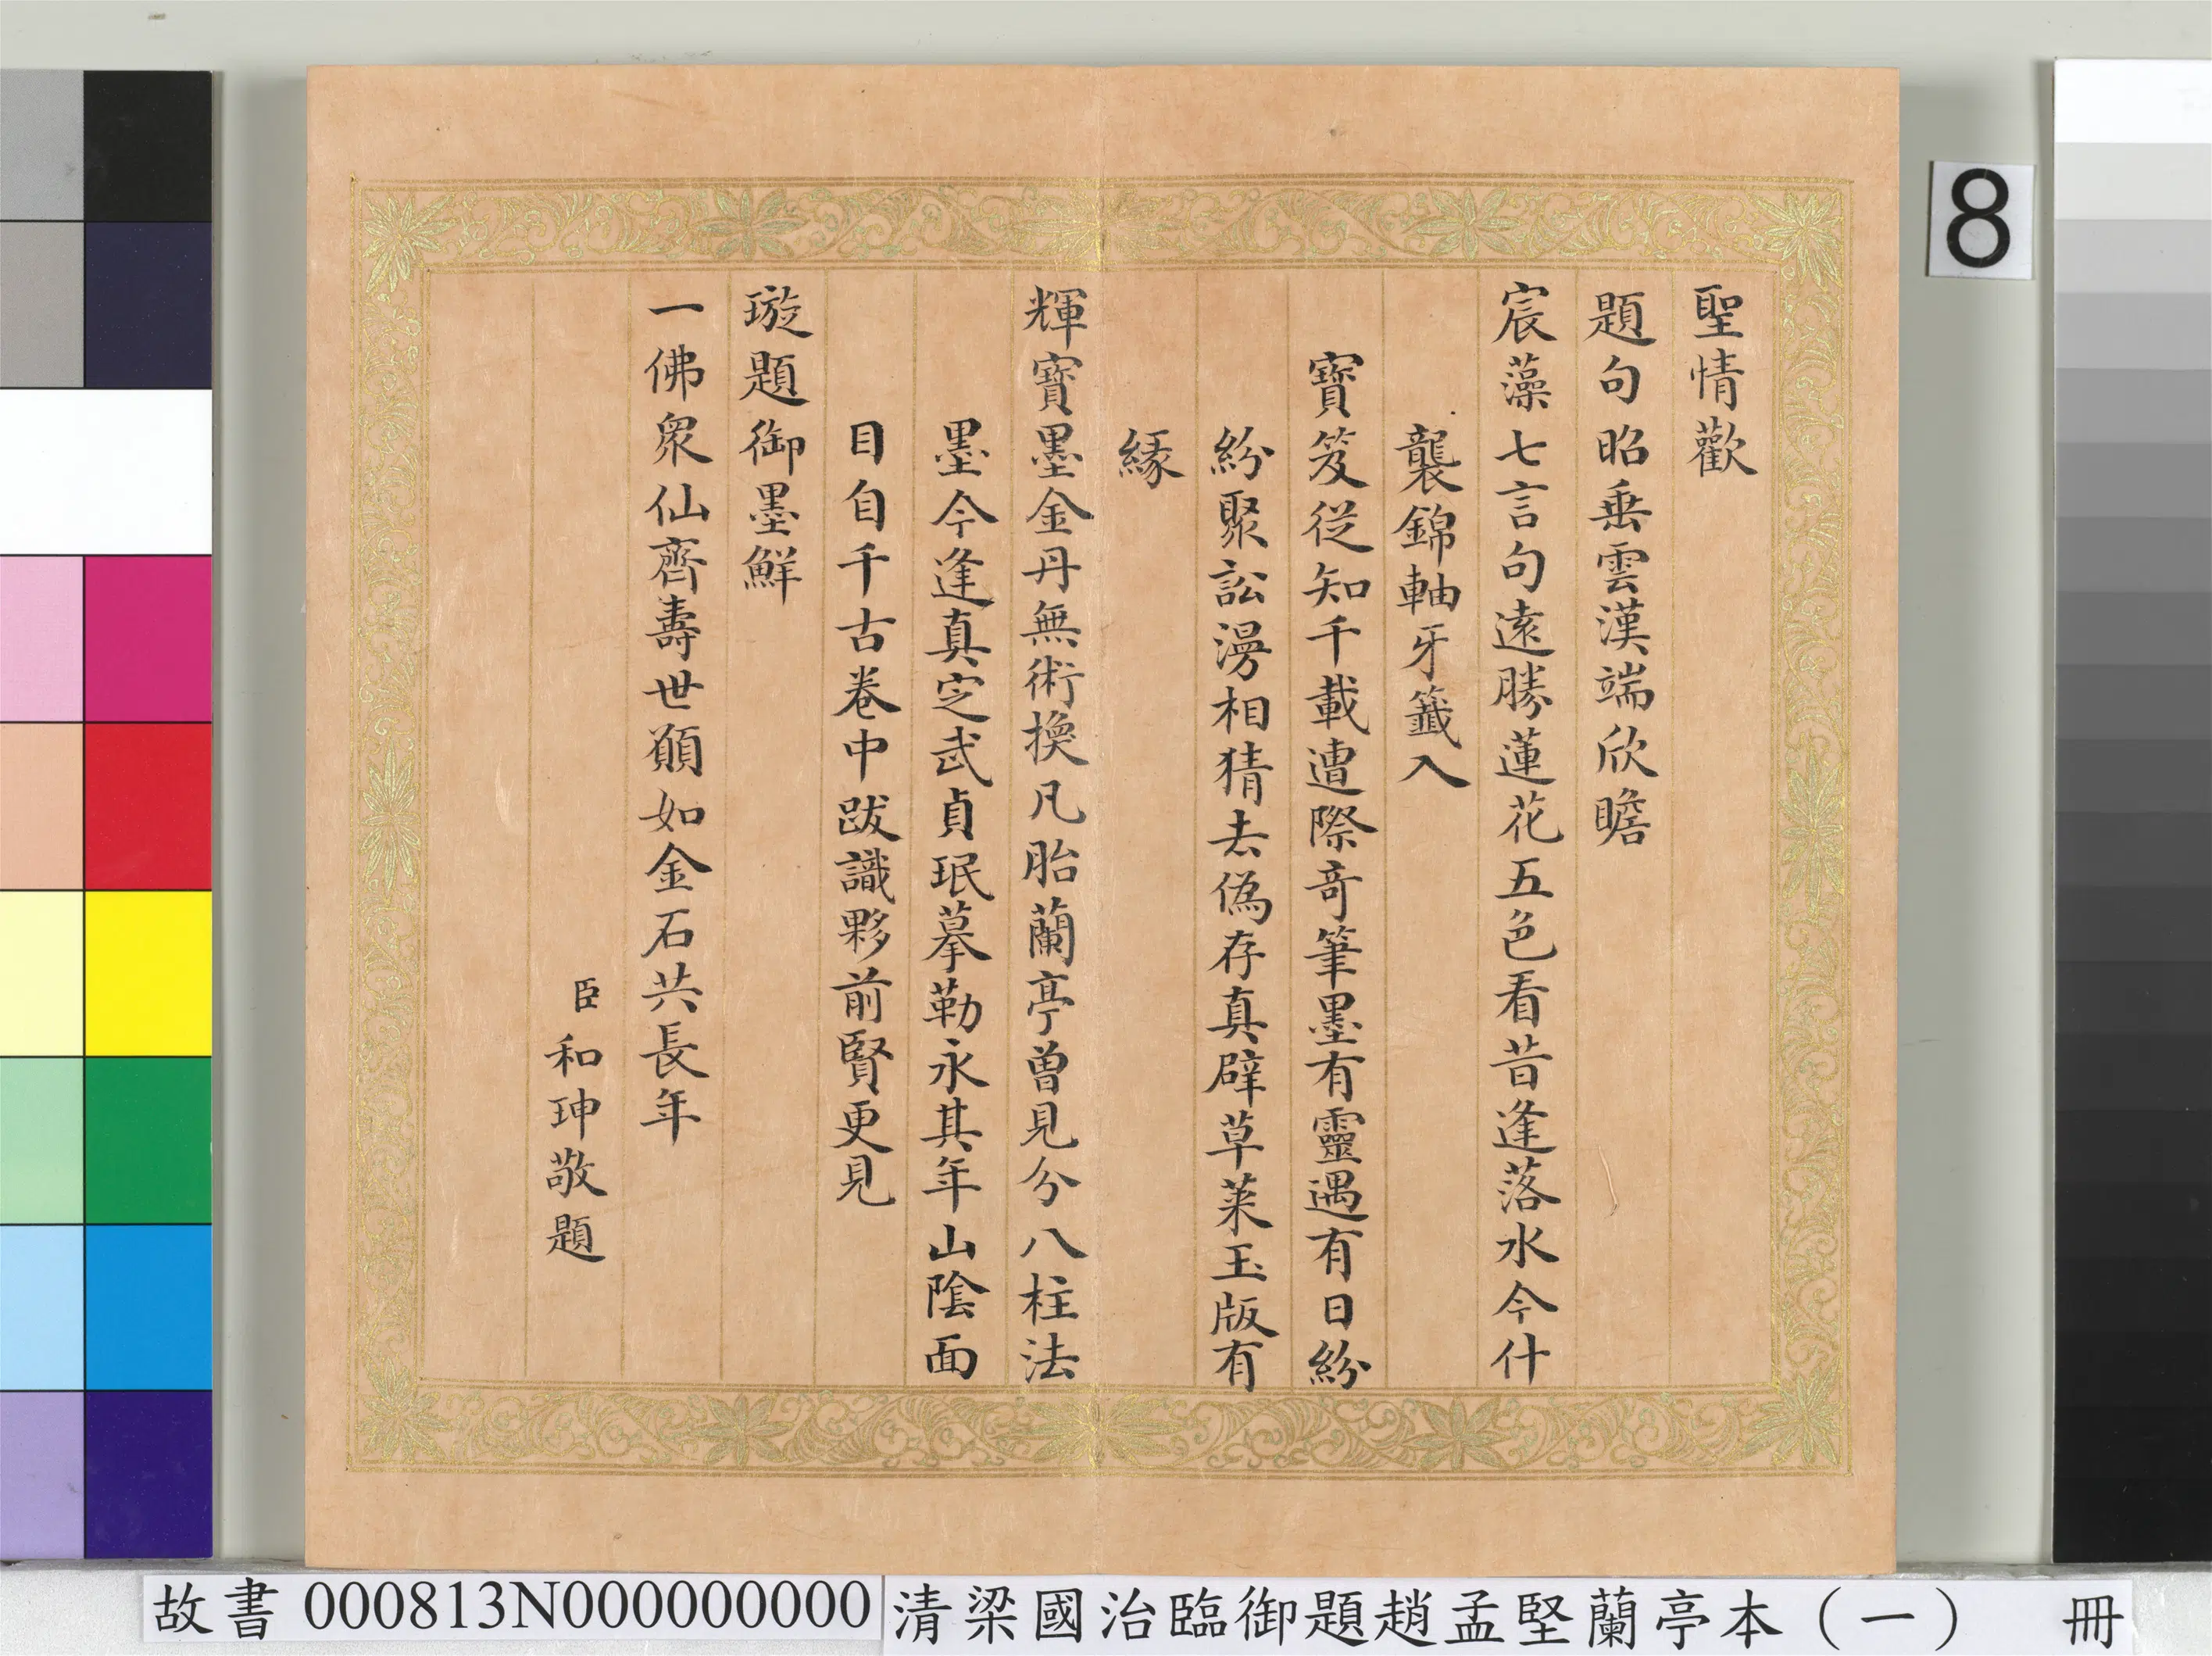 聖情歡
題句昭垂雲漢端欣瞻
宸藻七言句遠勝蓮花五色看昔逢落水今什
襲錦軸牙籤入
寶笈從知千載遭際奇筆墨有靈遇有日紛
紛聚訟漫相猜去偽存真辟草萊玉版有
緣
輝寶墨金丹無術換凡胎蘭亭曾見分八柱法
墨今逢真定武貞珉摹勒永其年山陰面
目自千古卷中跋識夥前賢更見
璇題御墨鮮
一佛眾仙齊壽世願如金石共長年
臣和珅敬題
8
故書000813N000000000
清梁國治臨御題趙孟堅蘭亭本（一） 冊